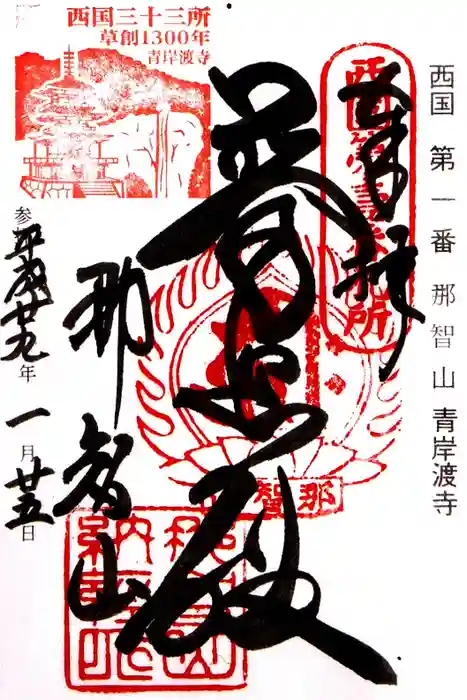 西国 第一番 那智山 青岸渡寺
奉拝
西国第壹番札所
普照殿
那智
那智山
西国三十三所
草創1300年
青岸渡寺
平成廿九年
一月廿五日